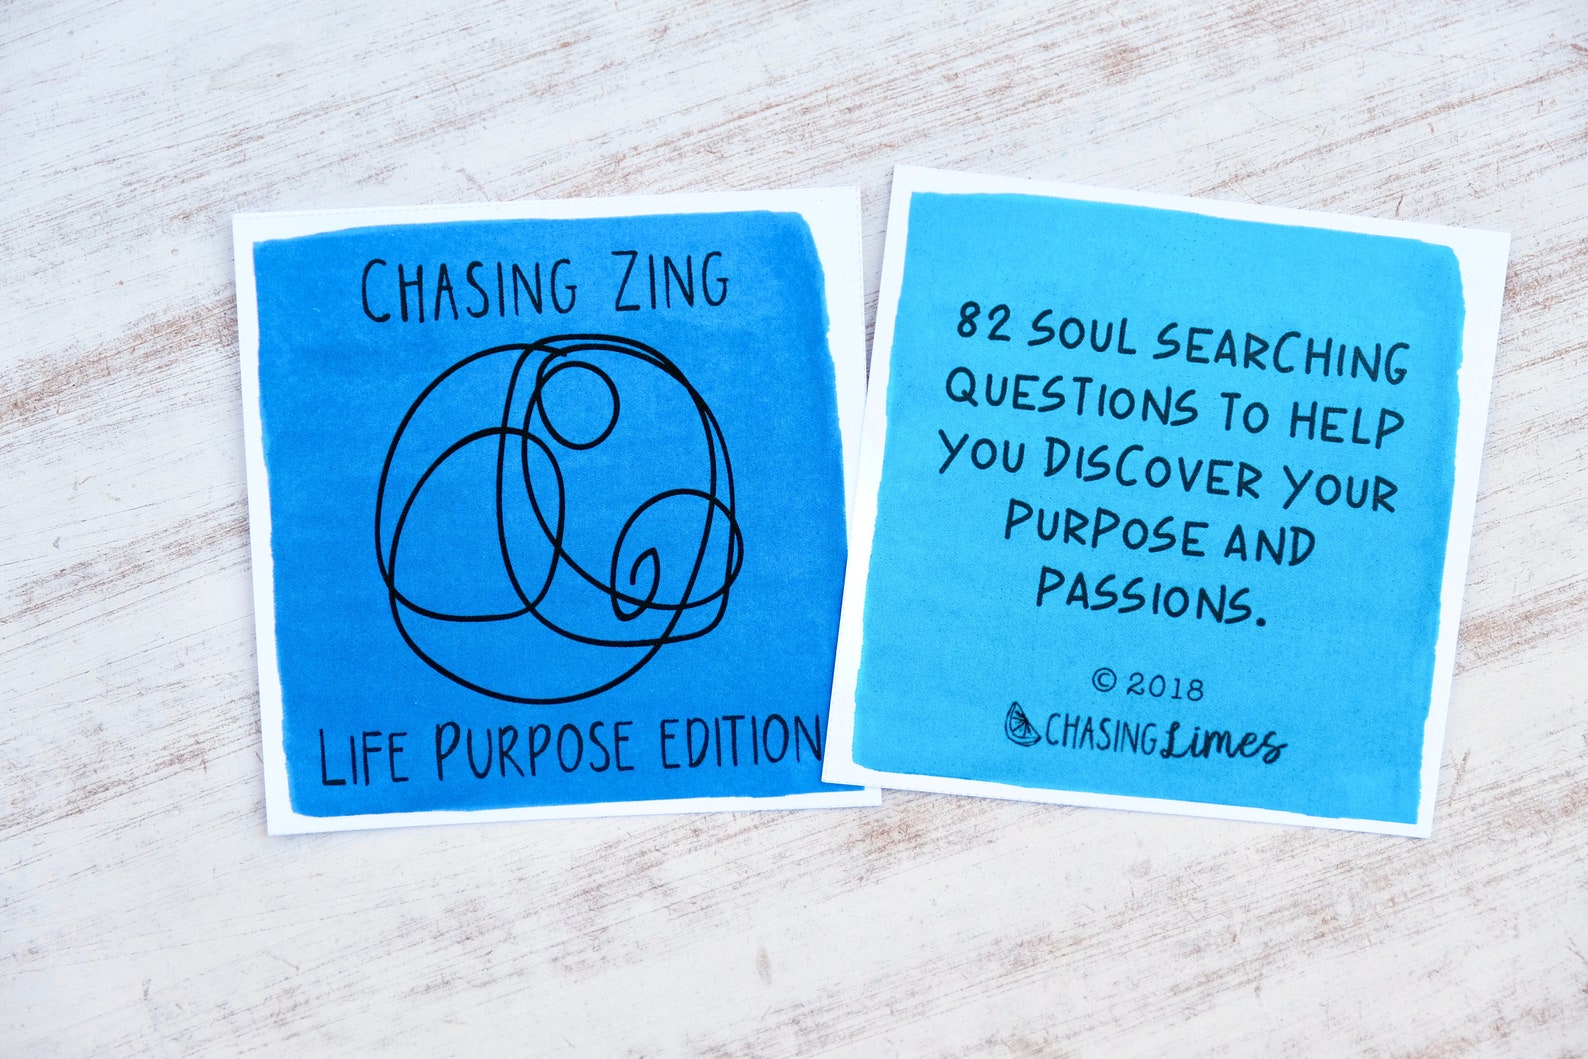 CHASING ZING
LIFE PURPOSE EDITION
82 SOUL SEARCHING
QUESTIONS TO HELP
YOU DISCOVER YOUR
PURPOSE AND
PASSIONS.
© 2018
CHASING Limes